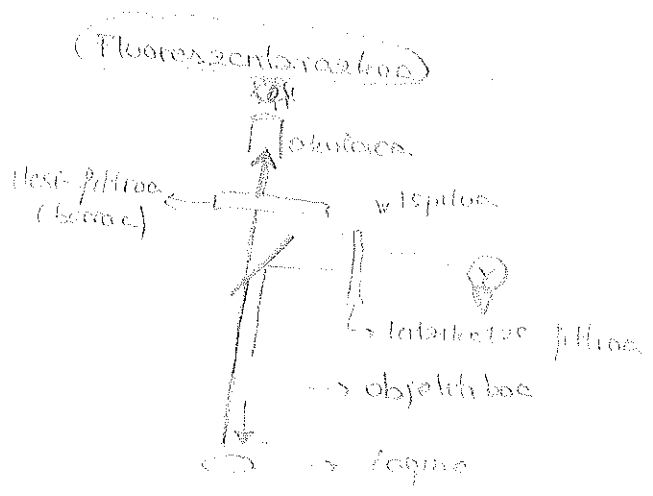 (Fluoreszentziazkoa)
okularra
Hesi-filtroa
(barrera)
ispilua
filtroa
objektiboa
lagina